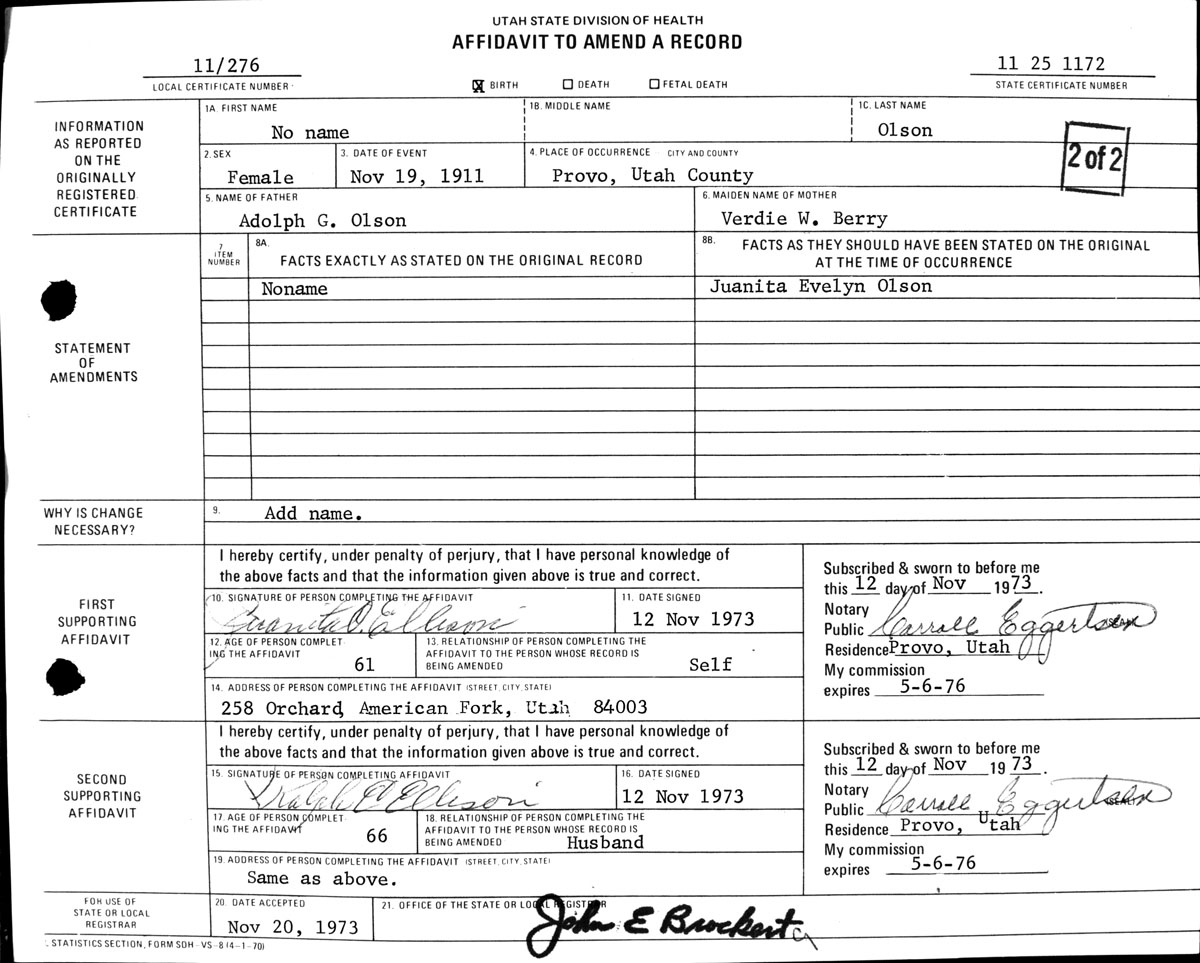 UTAH STATE DIVISION OF HEALTH
AFFIDAVIT TO AMEND A RECORD
11/276
LOCAL CERTIFICATE NUMBER
X BIRTH ☐ DEATH ☐ FETAL DEATH
11 25 1172
STATE CERTIFICATE NUMBER
INFORMATION
AS REPORTED
ON THE
ORIGINALLY
REGISTERED
CERTIFICATE
1A. FIRST NAME
No name
1B. MIDDLE NAME
1C. LAST NAME
Olson
2 of 2
2. SEX
Female
3. DATE OF EVENT
Nov 19, 1911
4. PLACE OF OCCURRENCE CITY AND COUNTY
Provo, Utah County
5. NAME OF FATHER
Adolph G. Olson
6. MAIDEN NAME OF MOTHER
Verdie W. Berry
STATEMENT
OF
AMENDMENTS
7
ITEM
NUMBER
8A.
FACTS EXACTLY AS STATED ON THE ORIGINAL RECORD
8B. FACTS AS THEY SHOULD HAVE BEEN STATED ON THE ORIGINAL
AT THE TIME OF OCCURRENCE
Noname
Juanita Evelyn Olson
WHY IS CHANGE
NECESSARY?
9. Add name.
FIRST
SUPPORTING
AFFIDAVIT
I hereby certify, under penalty of perjury, that I have personal knowledge of
the above facts and that the information given above is true and correct.
10. SIGNATURE OF PERSON COMPLETING THE AFFIDAVIT
Juanita O. Ellison
11. DATE SIGNED
12 Nov 1973
12. AGE OF PERSON COMPLET
ING THE AFFIDAVIT
61
13. RELATIONSHIP OF PERSON COMPLETING THE
AFFIDAVIT TO THE PERSON WHOSE RECORD IS
BEING AMENDED
Self
14. ADDRESS OF PERSON COMPLETING THE AFFIDAVIT (STREET, CITY, STATE)
258 Orchard, American Fork, Utah 84003
Subscribed & sworn to before me
this 12 day of Nov 1973
Notary
Public Carroll Eggertsen
Residence Provo, Utah
My commission
expires 5-6-76
SECOND
SUPPORTING
AFFIDAVIT
I hereby certify, under penalty of perjury, that I have personal knowledge of
the above facts and that the information given above is true and correct.
15. SIGNATURE OF PERSON COMPLETING AFFIDAVIT
Ralph E Ellison
16. DATE SIGNED
12 Nov 1973
17. AGE OF PERSON COMPLET
ING THE AFFIDAVIT
66
18. RELATIONSHIP OF PERSON COMPLETING THE
AFFIDAVIT TO THE PERSON WHOSE RECORD IS
BEING AMENDED
Husband
19. ADDRESS OF PERSON COMPLETING THE AFFIDAVIT (STREET, CITY, STATE)
Same as above.
Subscribed & sworn to before me
this 12 day of Nov 1973.
Notary
Public Carroll Eggertsen
Residence Provo, Utah
My commission
expires 5-6-76
FOR USE OF
STATE OR LOCAL
REGISTRAR
20. DATE ACCEPTED
Nov 20, 1973
21. OFFICE OF THE STATE OR LOCAL REGISTRAR
John E Brockert
. STATISTICS SECTION, FORM SDH-VS-8 (4-1-70)